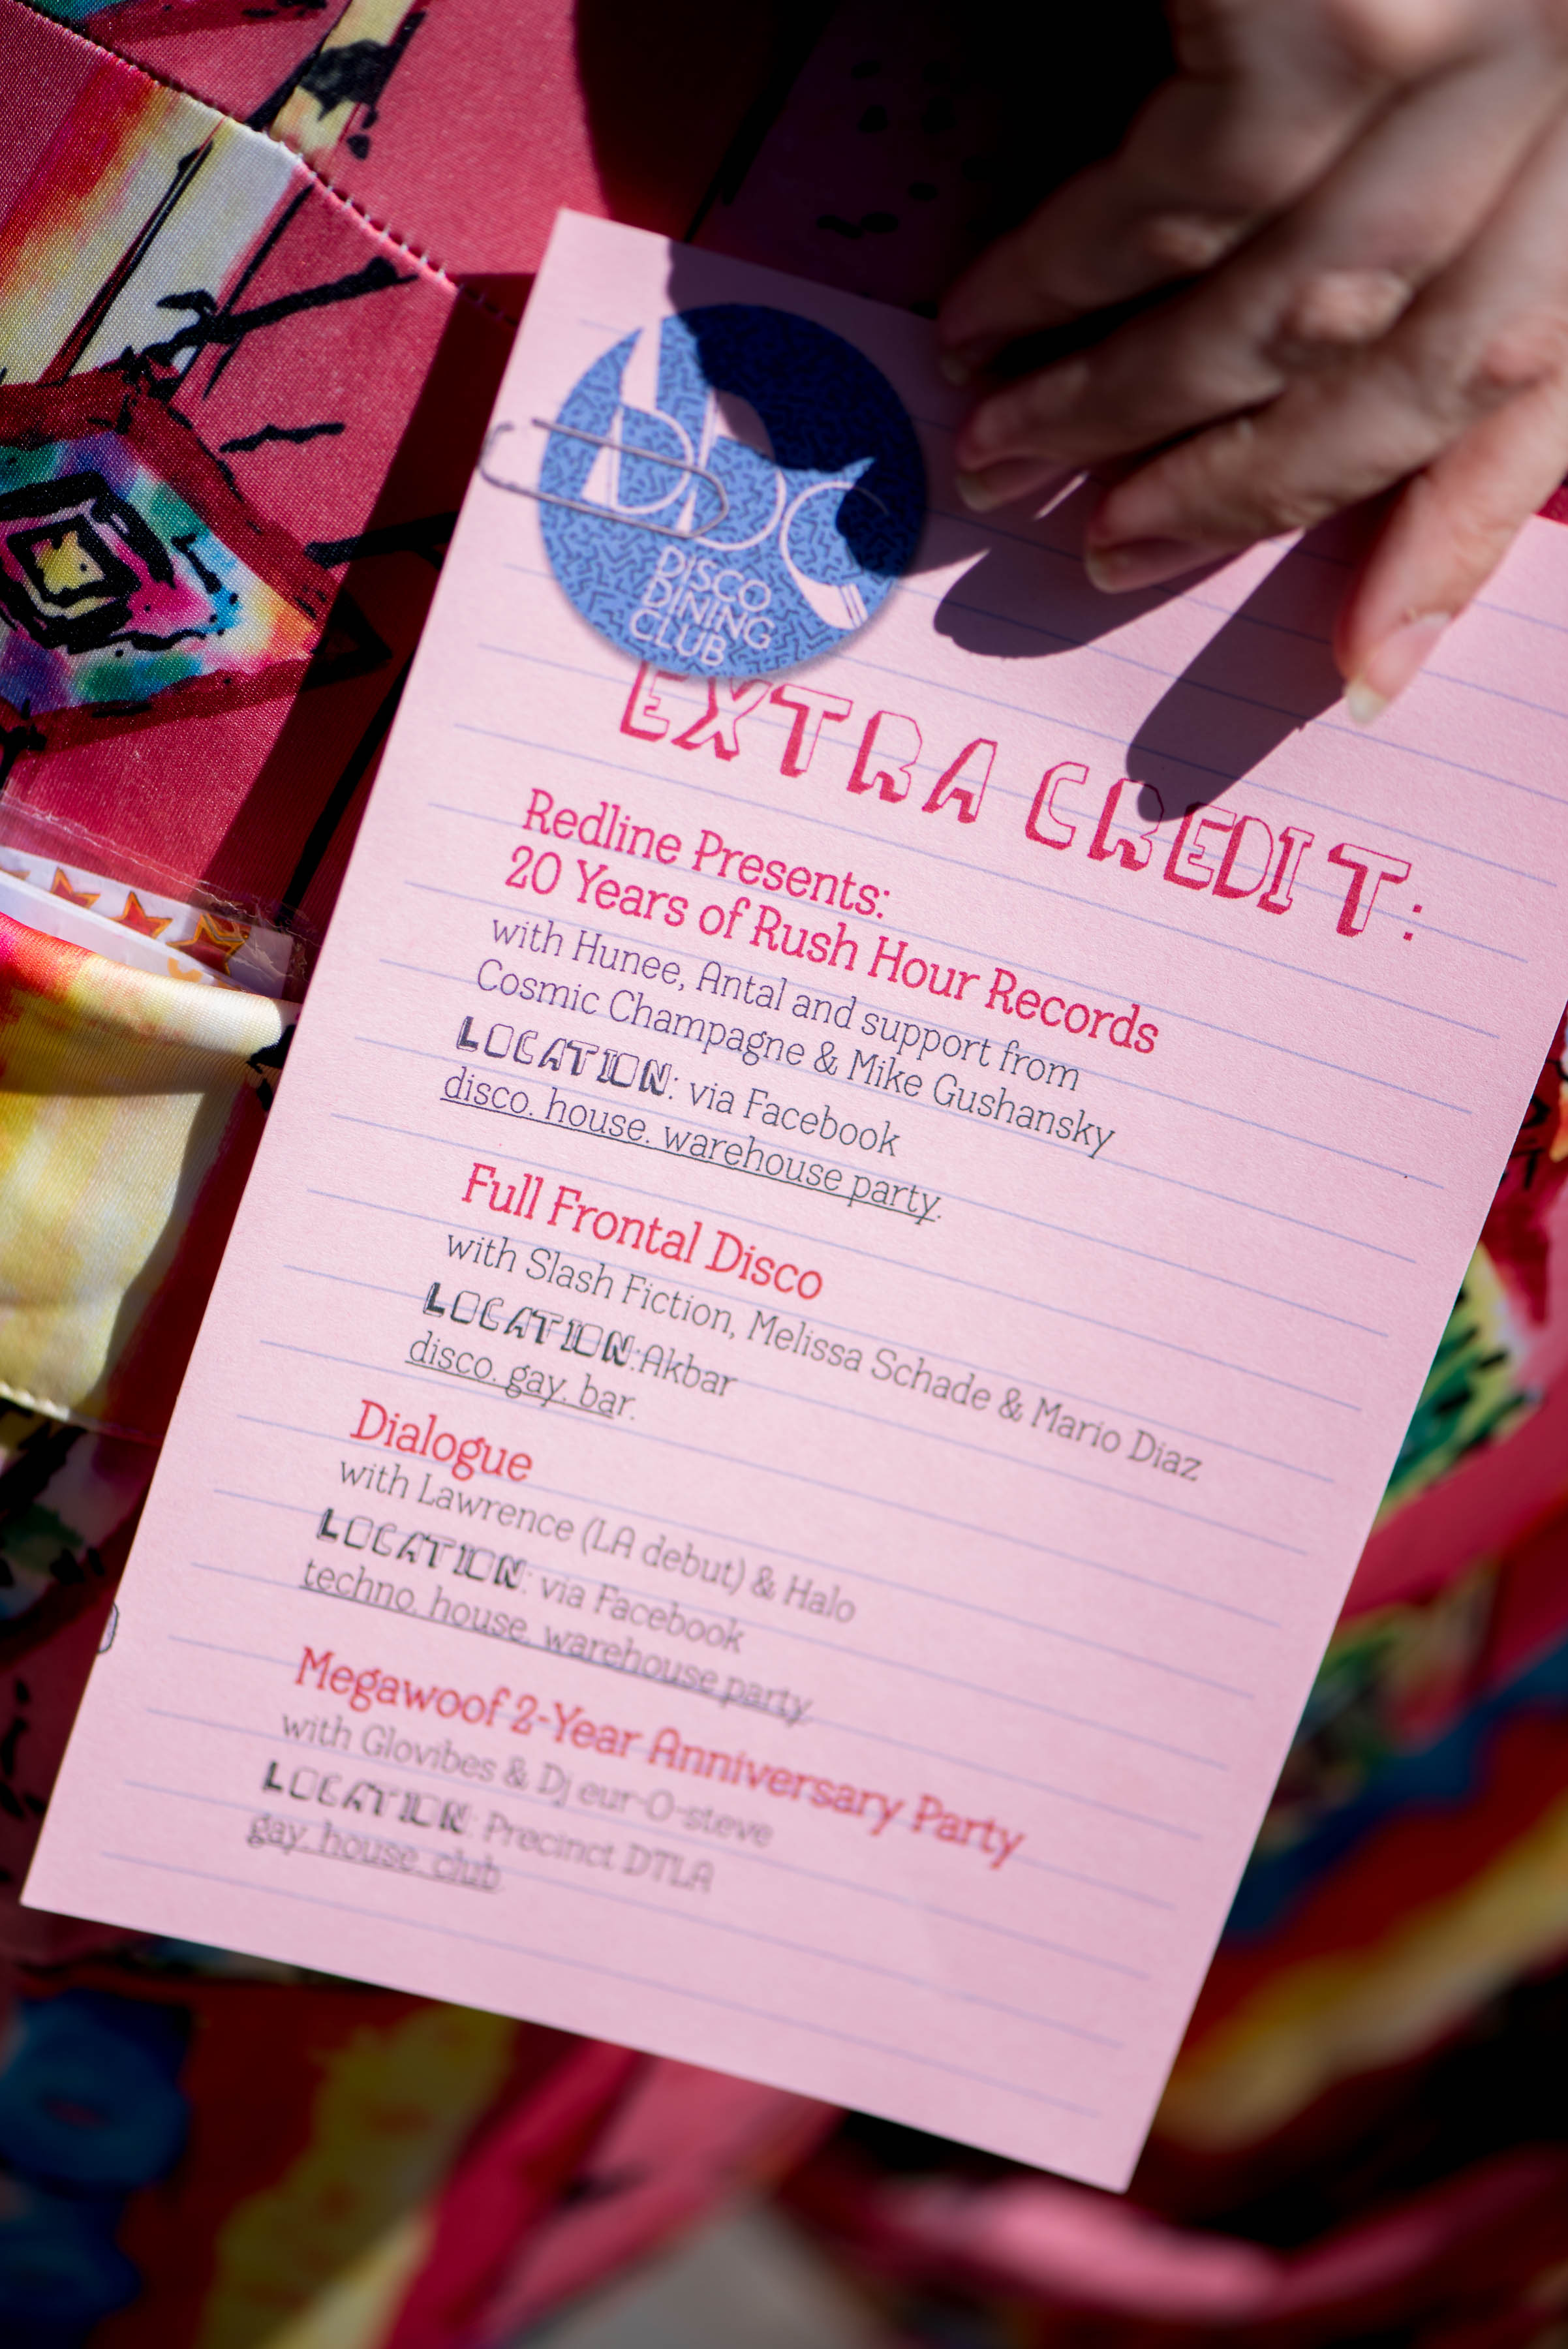 DDC
DISCO
DINING
CLUB
EXTRA CREDIT:
Redline Presents:
20 Years of Rush Hour Records
with Hunee, Antal and support from
Cosmic Champagne & Mike Gushansky
LOCATION: via Facebook
disco. house. warehouse party.
Full Frontal Disco
with Slash Fiction, Melissa Schade & Mario Diaz
LOCATION: Akbar
disco. gay. bar.
Dialogue
with Lawrence (LA debut) & Halo
LOCATION: via Facebook
techno. house. warehouse party
Megawoof 2-Year Anniversary Party
with Glovibes & Dj eur-O-steve
LOCATION: Precinct DTLA
gay. house. club